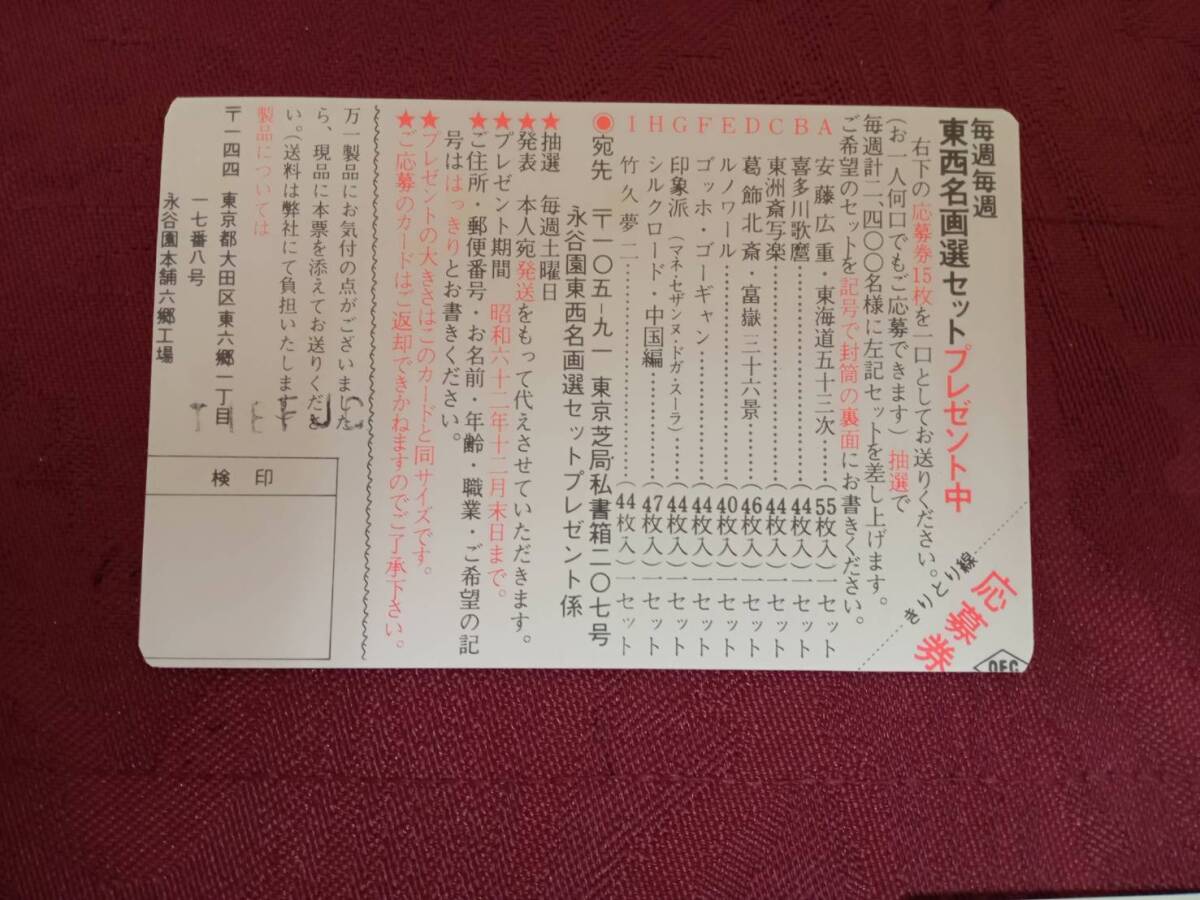 毎週毎週
東西名画選セットプレゼント中
右下の応募券15枚を一口としてお送りください。
(お一人何口でもご応募できます) 抽選で
毎週計二、四〇〇名様に左記セットを差し上げます。
ご希望のセットを記号で封筒の裏面にお書きください。
A 安藤広重・東海道五十三次……(55枚入)一セット
B 喜多川歌麿……(44枚入)一セット
C 東洲斎写楽……(44枚入)一セット
D 葛飾北斎・富嶽三十六景……(46枚入)一セット
E ルノワール……(40枚入)一セット
F ゴッホ・ゴーギャン……(44枚入)一セット
G 印象派(マネ・セザンヌ・ドガ・スーラ)……(44枚入)一セット
H シルクロード・中国編……(47枚入)一セット
I 竹久夢二……(44枚入)一セット
◉宛先 〒一〇五-九一 東京芝局私書箱二〇七号
永谷園東西名画選セットプレゼント係
★抽選 毎週土曜日
★発表 本人宛発送をもって代えさせていただきます。
★プレゼント期間 昭和六十二年十二月末日まで。
★ご住所・郵便番号・お名前・年齢・職業・ご希望の記
号ははっきりとお書きください。
★プレゼントの大きさはこのカードと同サイズです。
★ご応募のカードはご返却できかねますのでご了承下さい。
きりとり線
応募券
万一製品にお気付の点がございました
ら、現品に本票を添えてお送りくださ
い。(送料は弊社にて負担いたします)
製品については
〒一四四 東京都大田区東六郷一丁目
一七番八号
永谷園本舗六郷工場
検印